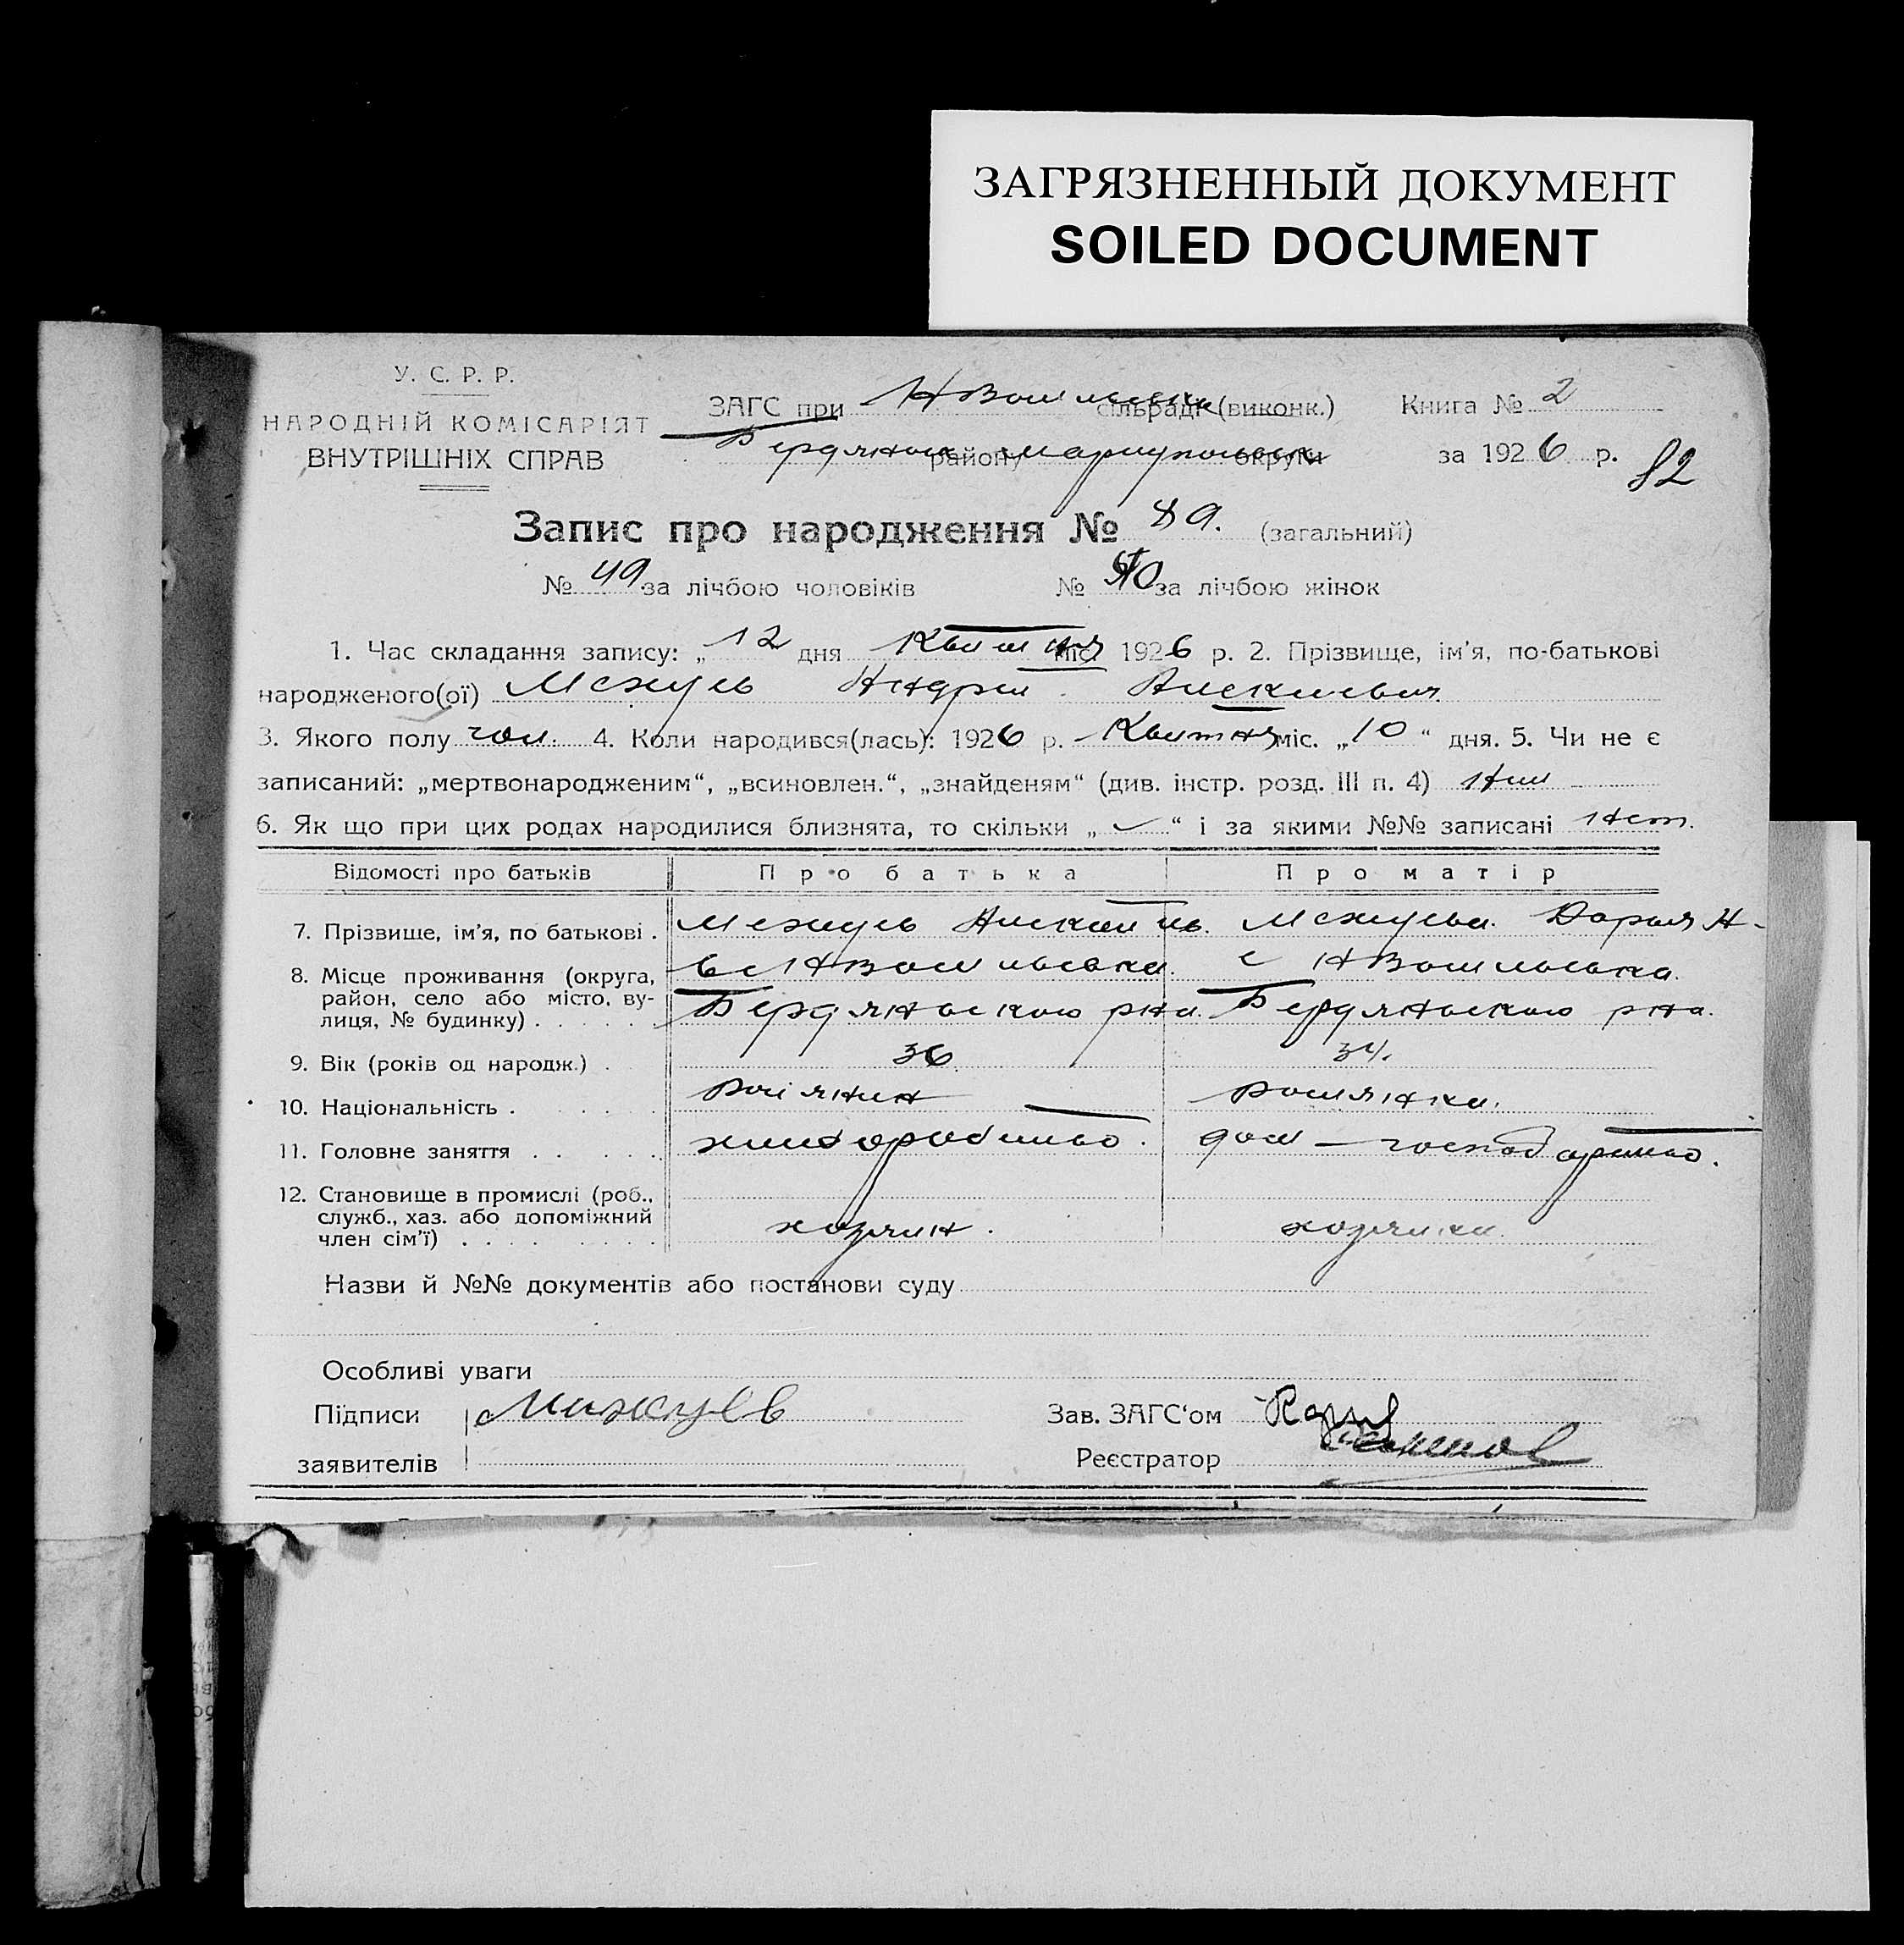 ЗАГРЯЗНЕННЫЙ ДОКУМЕНТ
SOILED DOCUMENT
У. С. Р. Р.
НАРОДНІЙ КОМІСАРІЯТ
ВНУТРІШНІХ СПРАВ
ЗАГС при сільраді (виконк.)
району округи
Книга № 2
за 1926 р.
82
Запис про народження № 89. (загальний)
№ 49 за лічбою чоловіків № 40 за лічбою жінок
1. Час складання запису: „ 12 дня Квитня міс. 1926 р. 2. Прізвище, ім’я, по-батькові
народженого(ої) Межуев Андрей Алексеевич
3. Якого полу чол. 4. Коли народився(лась): 1926 р. Квитня міс. „ 10 “ дня. 5. Чи не є
записаний: „мертвонародженим“, „всиновлен.“, „знайденям“ (див. інстр. розд. III п. 4)
6. Як що при цих родах народилися близнята, то скільки „ “ і за якими №№ записані нет.
Відомості про батьків Про батька Про матір
7. Прізвище, ім’я, по батькові . Межуев Межуева. Дарья Н-
8. Місце проживання (округа,
район, село або місто, ву-
лиця, № будинку) . . . . . Бердянського рна. Бердянського рна.
9. Вік (років од народж.) . 36. 34.
10. Національність . . . . . росіянин росіянка.
11. Головне заняття . . . . . хліборобство. дом — господарство.
12. Становище в промислі (роб.,
служб., хаз. або допоміжний
член сім’ї) . . . . . . . . хозяин. хозяйка.
Назви й №№ документів або постанови суду
Особливі уваги
Підписи Мижуев Зав. ЗАГС‘ом
заявителів Реєстратор